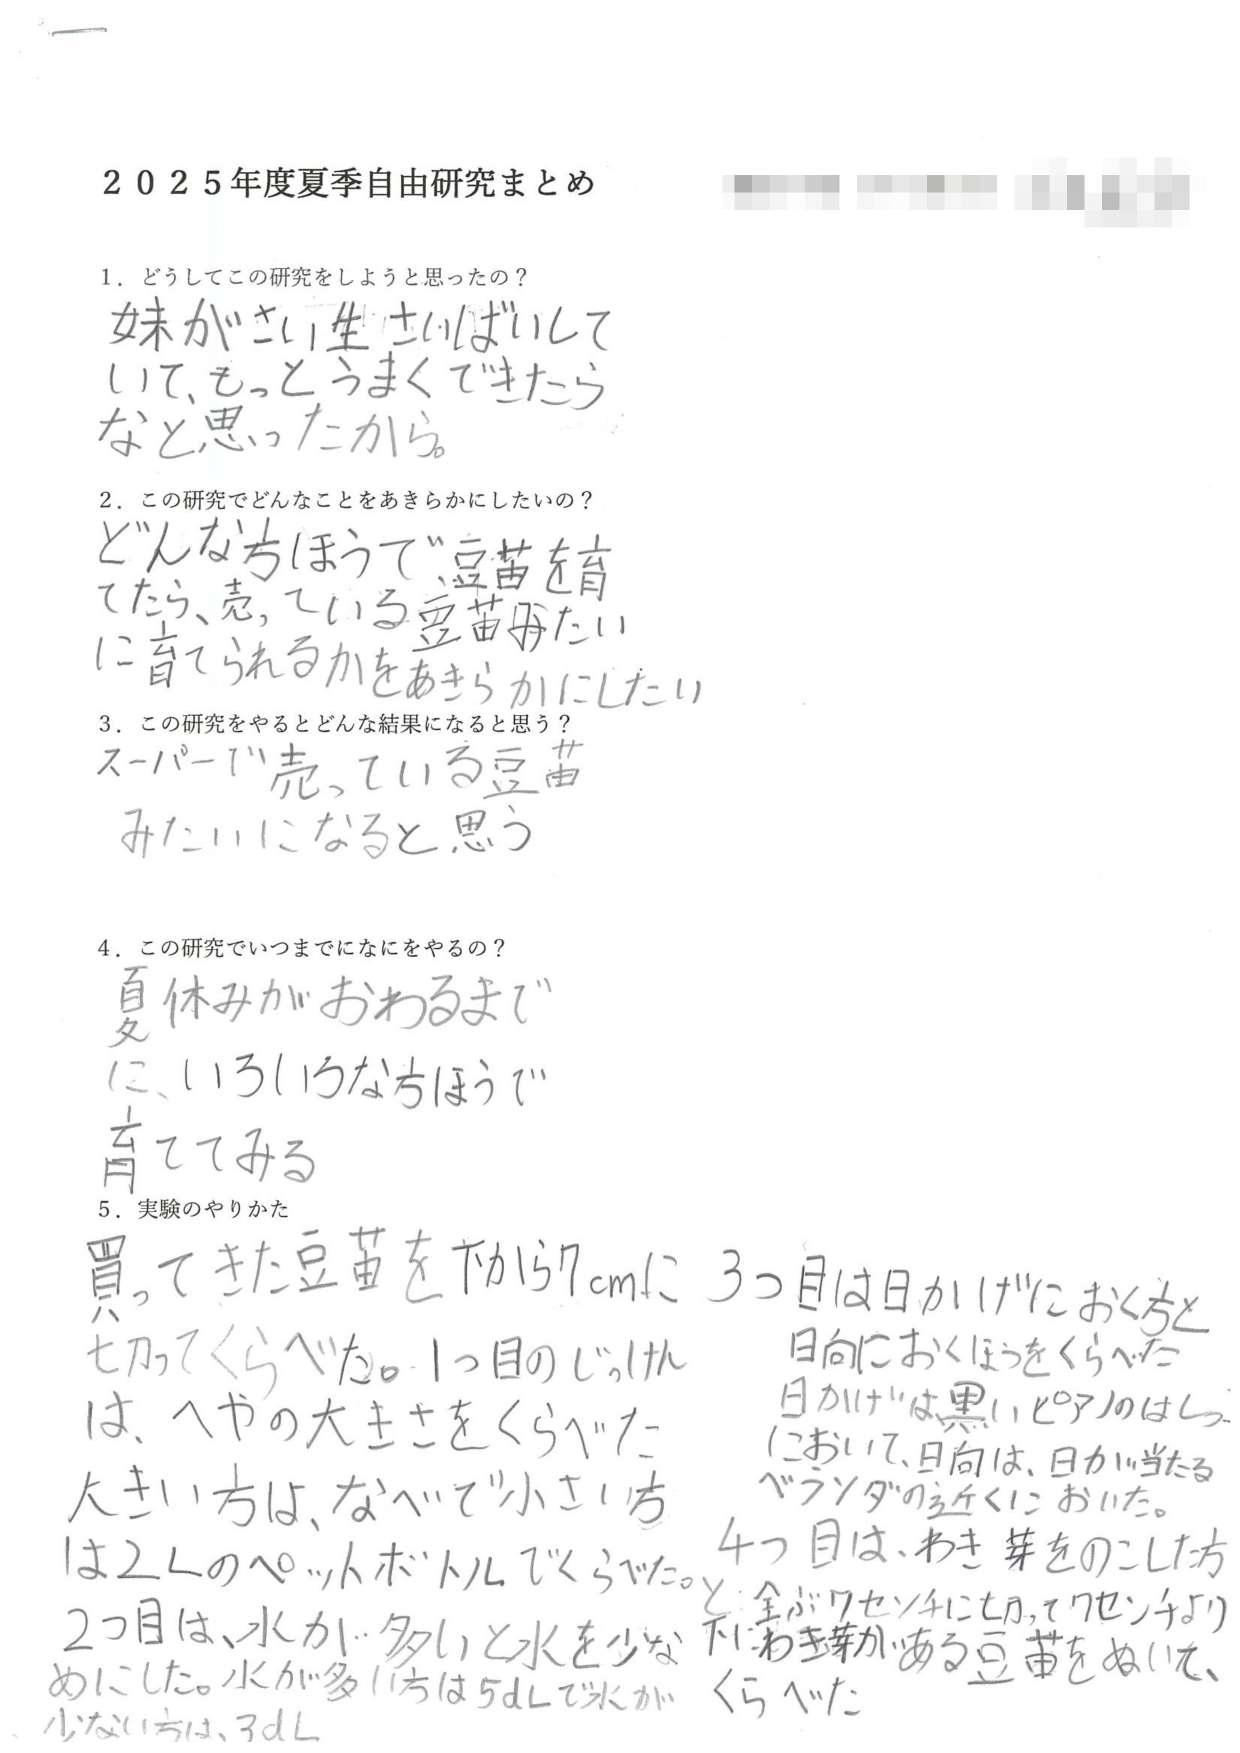 ２０２５年度夏季自由研究まとめ
1．どうしてこの研究をしようと思ったの？
妹がさい生さいばいして
いて、もっとうまくできたら
なと思ったから。
2．この研究でどんなことをあきらかにしたいの？
どんな方ほうで、豆苗を育
てたら、売っている豆苗みたい
に育てられるかをあきらかにしたい
3．この研究をやるとどんな結果になると思う？
スーパーで売っている豆苗
みたいになると思う
4．この研究でいつまでになにをやるの？
夏休みがおわるまで
に、いろいろな方ほうで
育ててみる
5．実験のやりかた
買ってきた豆苗を下から7cmに
切ってくらべた。1つ目のじっけん
は、へやの大きさをくらべた
大きい方は、なべで小さい方
は2Lのペットボトルでくらべた。
2つ目は、水が多いと水を少な
めにした。水が多い方は5dLで水が
少ない方は、3dL
3つ目は日かげにおく方と
日向におくほうをくらべた
日かげは、黒いピアノのはしっ
において、日向は、日が当たる
ベランダの近くにおいた。
4つ目は、わき芽をのこした方
と、全ぶ7センチに切って7センチより
下にわき芽がある豆苗をぬいて、
くらべた